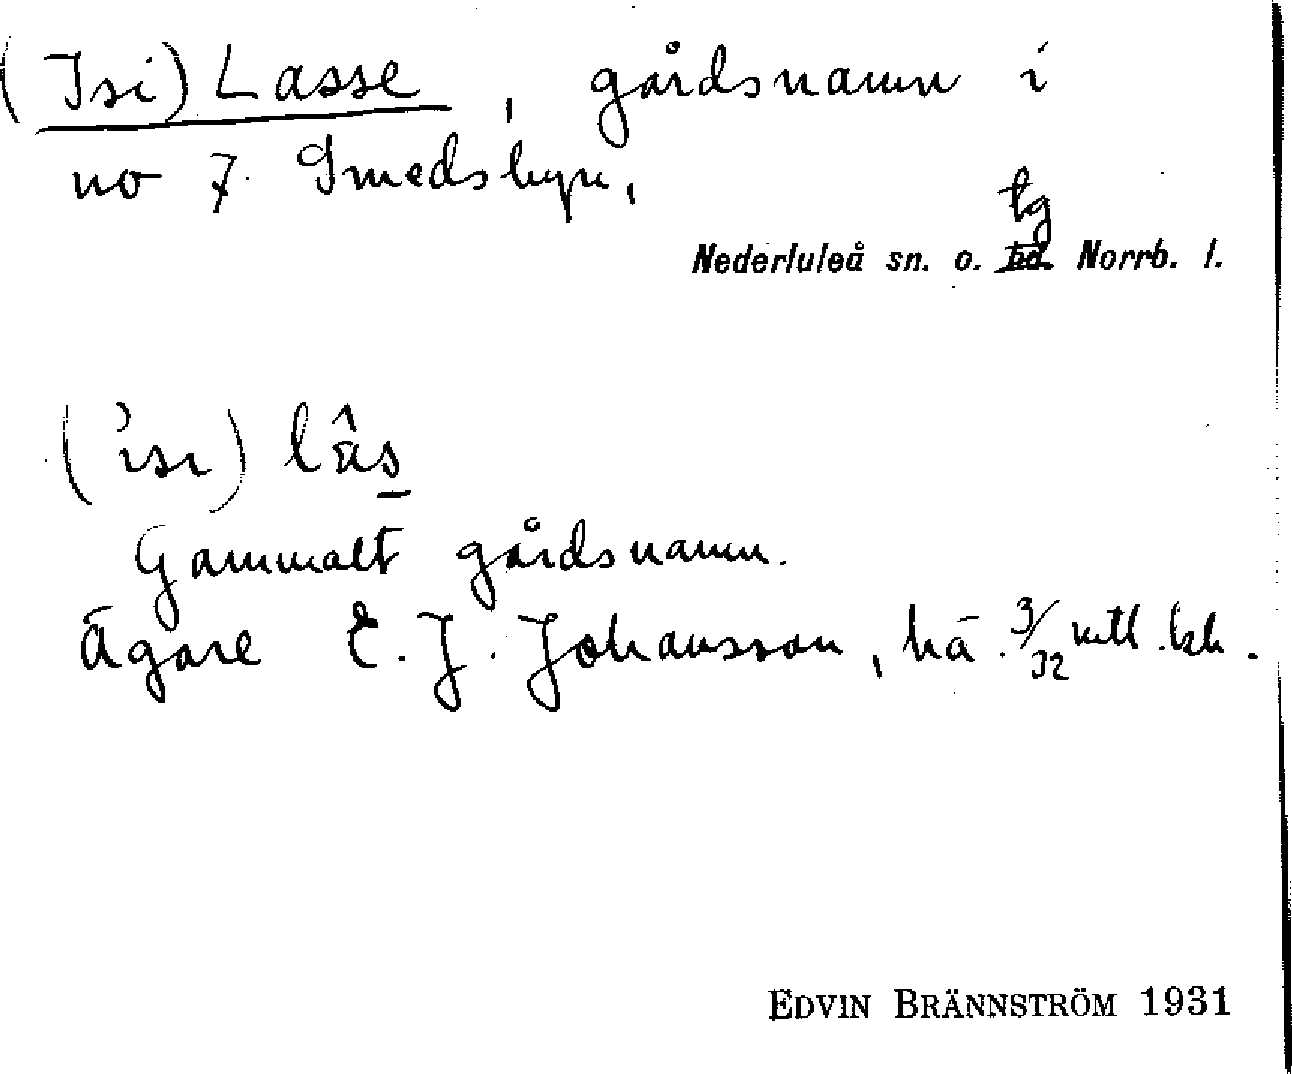 (Isi) Lasse, gårdsnamn i
no 7. Smedsbyn,
tg
Nederluleå sn. o. hd. Norrb. l.
(ìsi) lâs
Gammalt gårdsnamn.
Ägare E. J. Johansson, há. 3/32 mtl.
EDVIN BRÄNNSTRÖM 1931